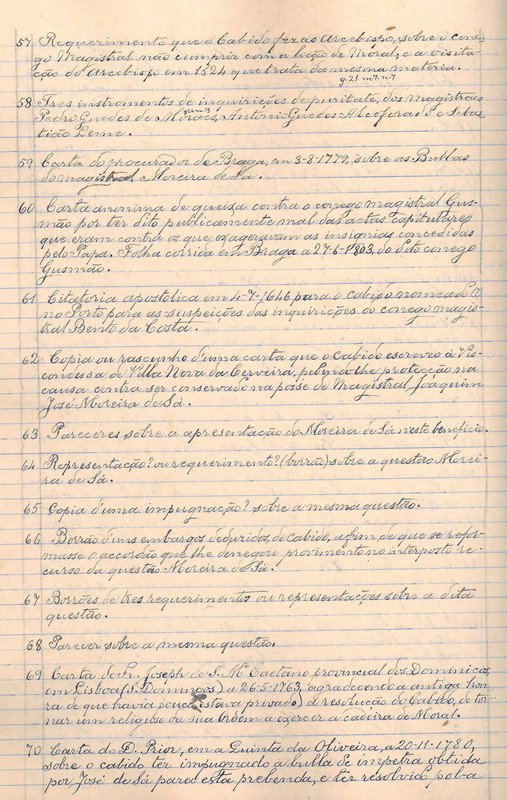 57 Requerimento que o Cabido fez ao Arcebispo, sobre o cone-
go Magistral não cumprir com a lição de Moral, e a visita-
ção do Arcebispo em 1524 que trata da mesma materia.
58 Tres instrumentos de inquirições de puritate, dos magistraes
Pedro Guedes de Moraes, Antonio Guedes Alcoforado e Sebas-
tião Leme.
59 Carta do procurador de Braga, em 3-8-1779, sobre as Bullas
do magistral Moreira de Sá.
60 Carta anonima de queixa contra o conego magistral Gus-
mão por ter dito publicamente mal das actas capitulares
que eram contra os que exageravam as insignias concedidas
pelo Papa. Folha corrida em Braga a 27-6-1803, do dito conego
Gusmão.
61 Citatoria apostolica em 4-7-1646 para o cabido nomear
no Porto para as suspeições das inquirições ao conego magis-
tral Bento da Costa.
62 Copia ou rascunho d'uma carta que o Cabido escreveu á Vis-
condessa de Villa Nova da Cerveira, pedindo lhe protecção na
causa contra ser conservado na posse de Magistral Joaquim
José Moreira de Sá.
63 Pareceres sobre a apresentação do Moreira de Sá n'este beneficio.
64 Representação? ou requerimento? (borrão) sobre a questão Morei-
ra de Sá.
65 Copia d'uma impugnação? sobre a mesma questão.
66 Borrão d'uns embargos deduzidos, do Cabido, afim de que se refor-
masse o accordão que lhe denegou provimento no interposto re-
curso da questão Moreira de Sá.
67 Borrões de tres requerimentos ou representações sobre a dita
questão.
68 Parecer sobre a mesma questão.
69 Carta de Fr. Joseph de S. Mª Caetano provincial dos Dominicos,
em Lisboa (S. Domingos) a 26-5-1763, agradecendo a antiga hon-
ra de que havia pouco estava privado) a resolução do Cabido, de tor-
nar um religioso da sua Ordem a exercer a cadeira de Moral.
70 Carta do D. Prior, em a Quinta da Oliveira, a 20-11-1780,
sobre o cabido ter impugnado a bulla de impetra obtida
por José de Sá para esta prebenda, e ter resolvido pol-a